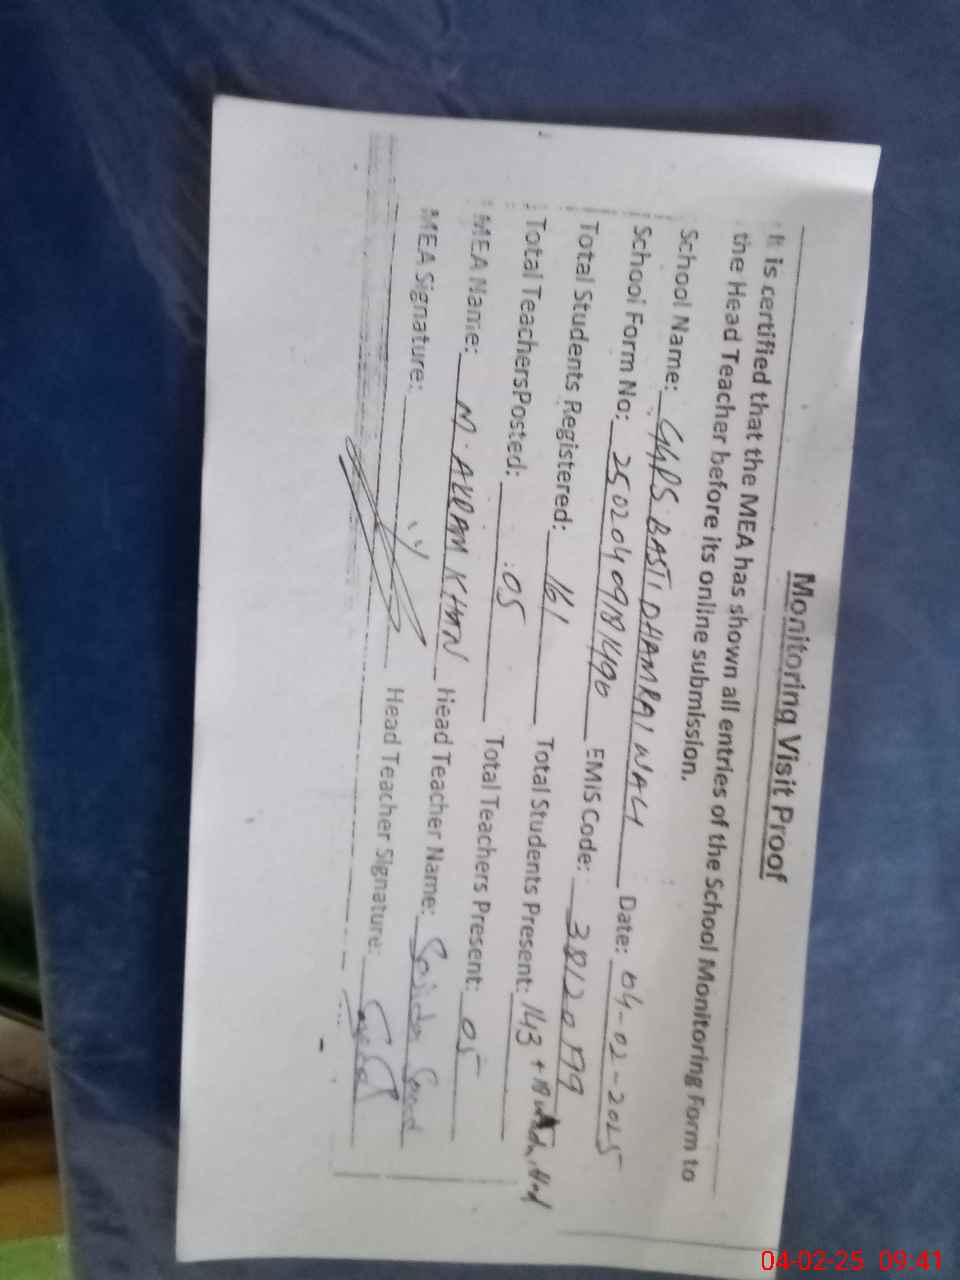 Monitoring Visit Proof
It is certified that the MEA has shown all entries of the School Monitoring Form to
the Head Teacher before its online submission.
School Name: GGPS BASTI DHAMRAI WALI Date: 04-02-2025
School Form No: EMIS Code:
Total Students Registered: 161 Total Students Present: 143 + 18
Total TeachersPosted: 05 Total Teachers Present: 05
MEA Name: M. AKRAM KHAN Head Teacher Name:
MEA Signature: Head Teacher Signature:
04-02-25 09:41